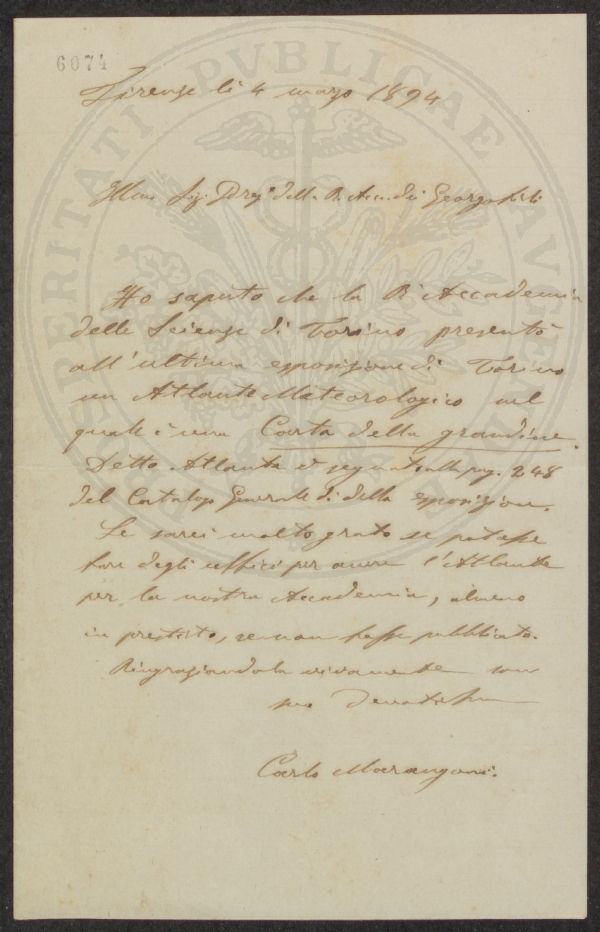 6074
PROSPERITATI PVBLICAE AVGENDAE
Firenze li 4 marzo 1894
Illmo Sig. della R. Acc. dei Georgofili
Ho saputo che la R. Accademia
delle Scienze di Torino presentò
all'ultima esposizione di Torino
un Atlante Meteorologico nel
quale è una Carta della grandine.
Detto Atlante è segnato alla pag. 248
del Catalogo Generale di detta esposizione.
Le sarei molto grato se potesse
fare degli uffici per avere l'Atlante
per la nostra Accademia, almeno
in prestito, se non fosse pubblicato.
Ringraziandola vivamente sono
suo
Carlo Marangoni.